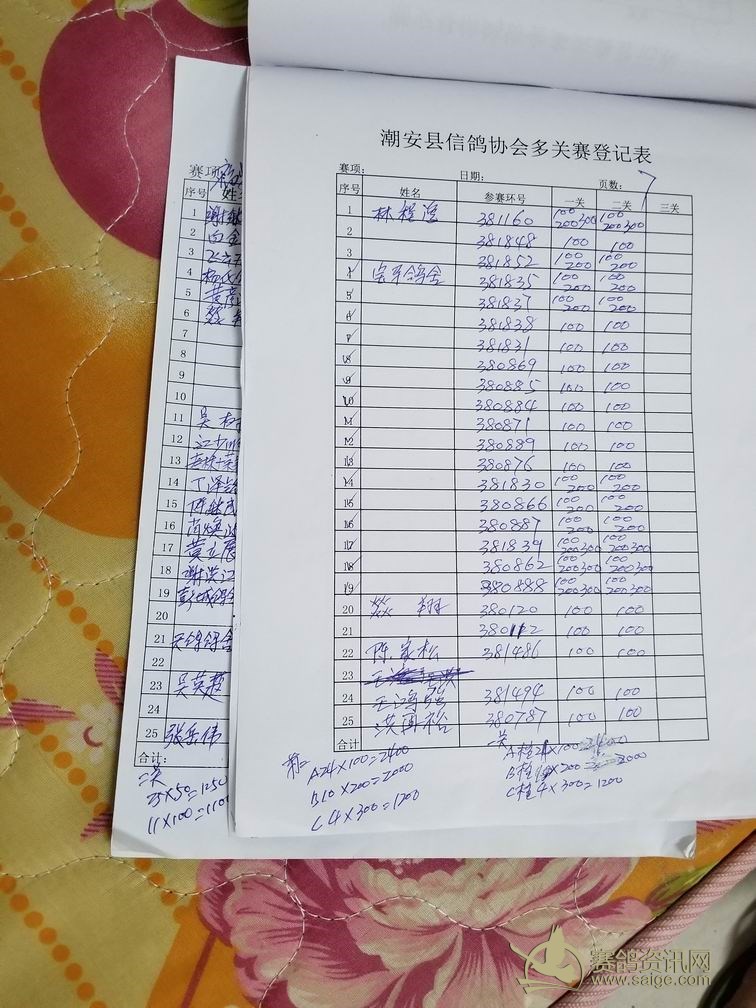 潮安县信鸽协会多关赛登记表
赛项: 日期: 页数:
序号 姓名 参赛环号 一关 二关 三关
1 林程滢 381160 100 200 300 100 200 300
2 381848 100 100
3 381852 100 200 100 200
4 381835 100 200 100 200
5 381837 100 200 100 200
6 381838 100 100
7 381831 100 100
8 380869 100 100
9 380885 100 100
10 380884 100 100
11 380871 100 100
12 380889 100 100
13 380876 100 100
14 381830 100 200 100 200
15 380866 100 200 100 200
16 380887 100 200 100 200
17 381839 100 200 300 100 200 300
18 380862 100 200 300 100 200 300
19 380888 100 200 300 100 200 300
20 380120 100 100
21 380112 100 100
22 陈家松 381486 100 100
23
24 王鸿强 381494 100 100
25 洪再裕 380787 100 100
合计
A24×100=2400
B10×200=2000
C4×300=1200
二关
A栏 ×100
B栏 ×200= 2000
C栏4×300=1200
赛项
序号 姓
1 谢
2
3
4 杨
5 黄
6
7
8
9
10
11 吴
12 江
13
14 丁泽
15 陈
16 肖焕
17 黄立
18 谢洪江
19 彭城鸽
20
21 天锦鸽舍
22
23 吴英
24
25 张岳伟
合计:
二关
25×50=1250
11×100=1100
赛鸽资讯网
www.saige.com